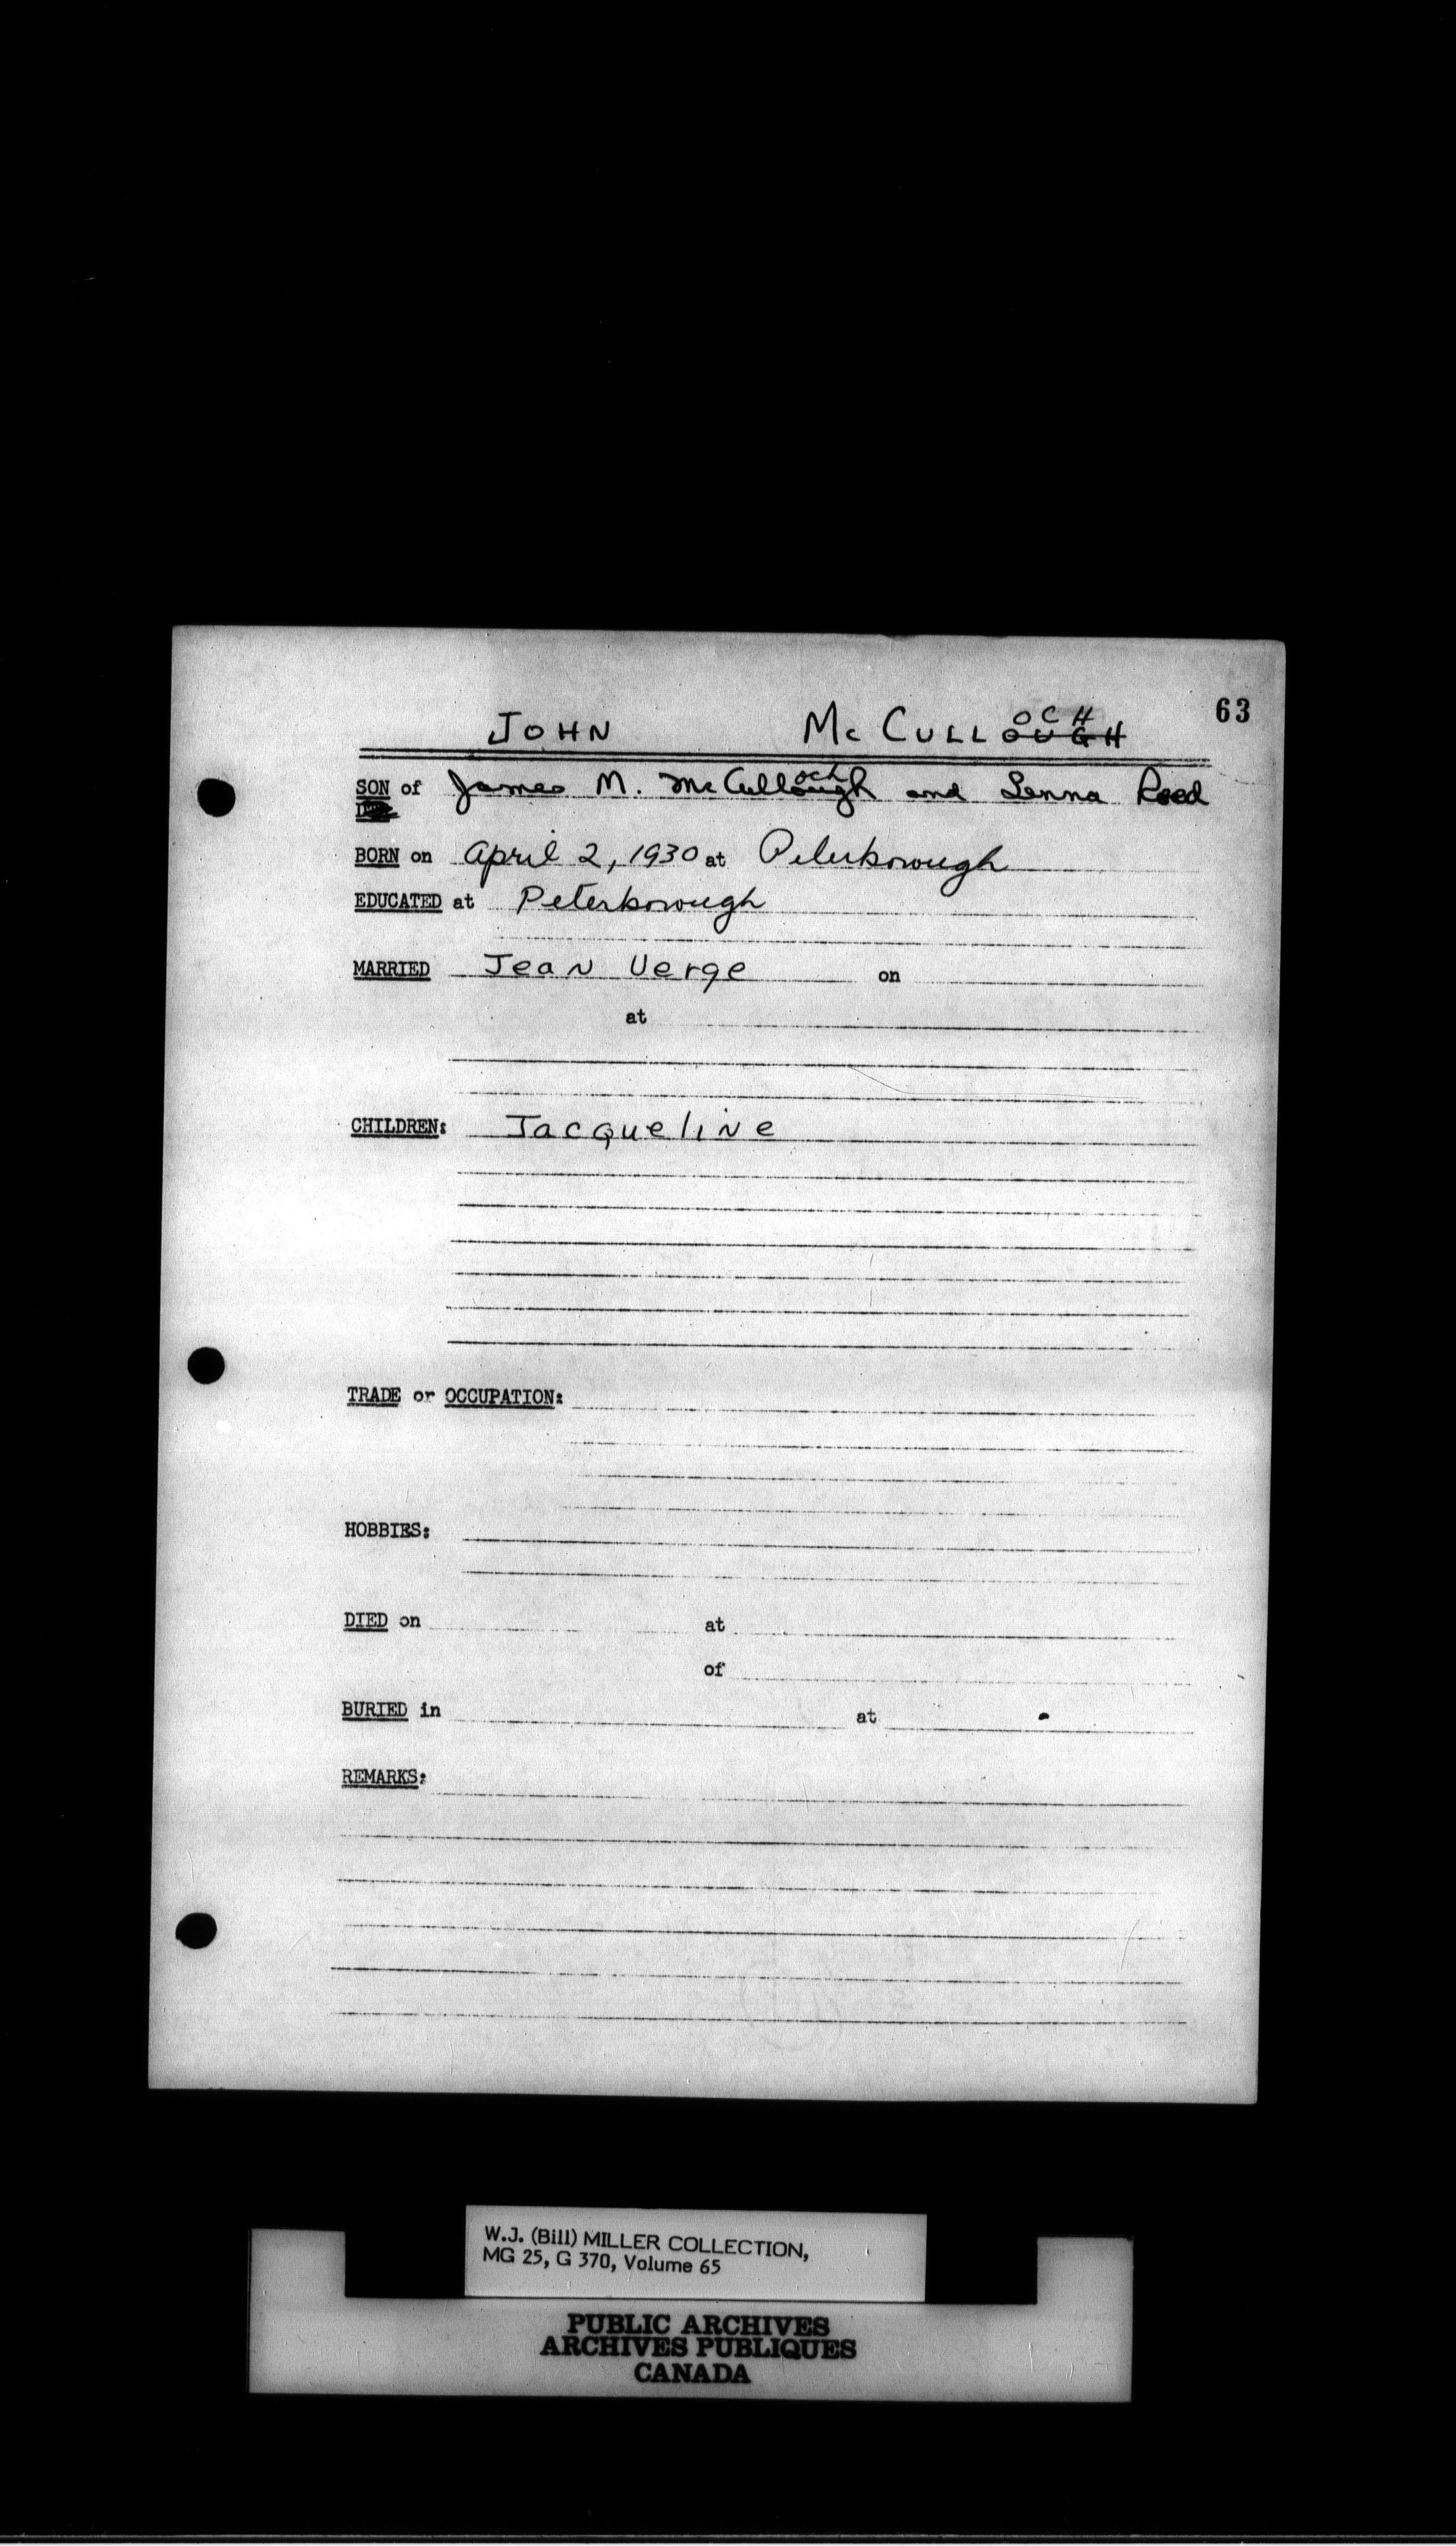 63
JOHN McCULLOUGH OCH
SON of James M. McCullough och and Lenna Reed
BORN on April 2, 1930 at Peterborough
EDUCATED at Peterborough
MARRIED Jean Verge on
at
CHILDREN: Jacqueline
TRADE or OCCUPATION:
HOBBIES:
DIED on at
of
BURIED in at
REMARKS:
W.J. (Bill) MILLER COLLECTION,
MG 25, G 370, Volume 65
PUBLIC ARCHIVES
ARCHIVES PUBLIQUES
CANADA